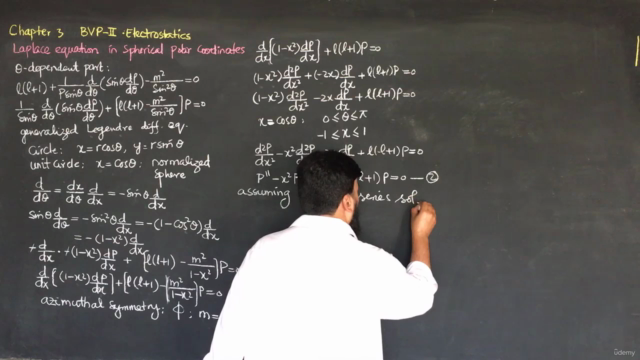 Chapter 3 BVP-II - Electrostatics
Laplace equation in Spherical Polar Coordinates
θ-dependent part:
l(l+1) + 1/(P sinθ) d/dθ (sinθ dP/dθ) - m²/sin²θ = 0
1/sinθ d/dθ (sinθ dP/dθ) + [l(l+1) - m²/sin²θ] P = 0
generalized Legendre diff. eq.
Circle: x = r cosθ, y = r sinθ
unit Circle: x = cosθ: normalized
sphere
d/dθ = dx/dθ d/dx = -sinθ d/dx
sinθ d/dθ = -sin²θ d/dx = -(1-cos²θ) d/dx
= -(1-x²) d/dx
+ d/dx · +(1-x²) dP/dx + [l(l+1) - m²/(1-x²)] P = 0
d/dx {(1-x²) dP/dx} + [l(l+1) - m²/(1-x²)] P = 0
azimuthal Symmetry: Φ : m =
d/dx [(1-x²) dP/dx] + l(l+1) P = 0
(1-x²) d²P/dx² + (-2x) dP/dx + l(l+1) P = 0
(1-x²) d²P/dx² - 2x dP/dx + l(l+1) P = 0
x = cosθ : 0 ≤ θ ≤ π
-1 ≤ x ≤ 1
d²P/dx² - x² d²P/dx + l(l+1) P = 0
P'' - x² +1) P = 0 — ②
assuming series sol
ûdemy